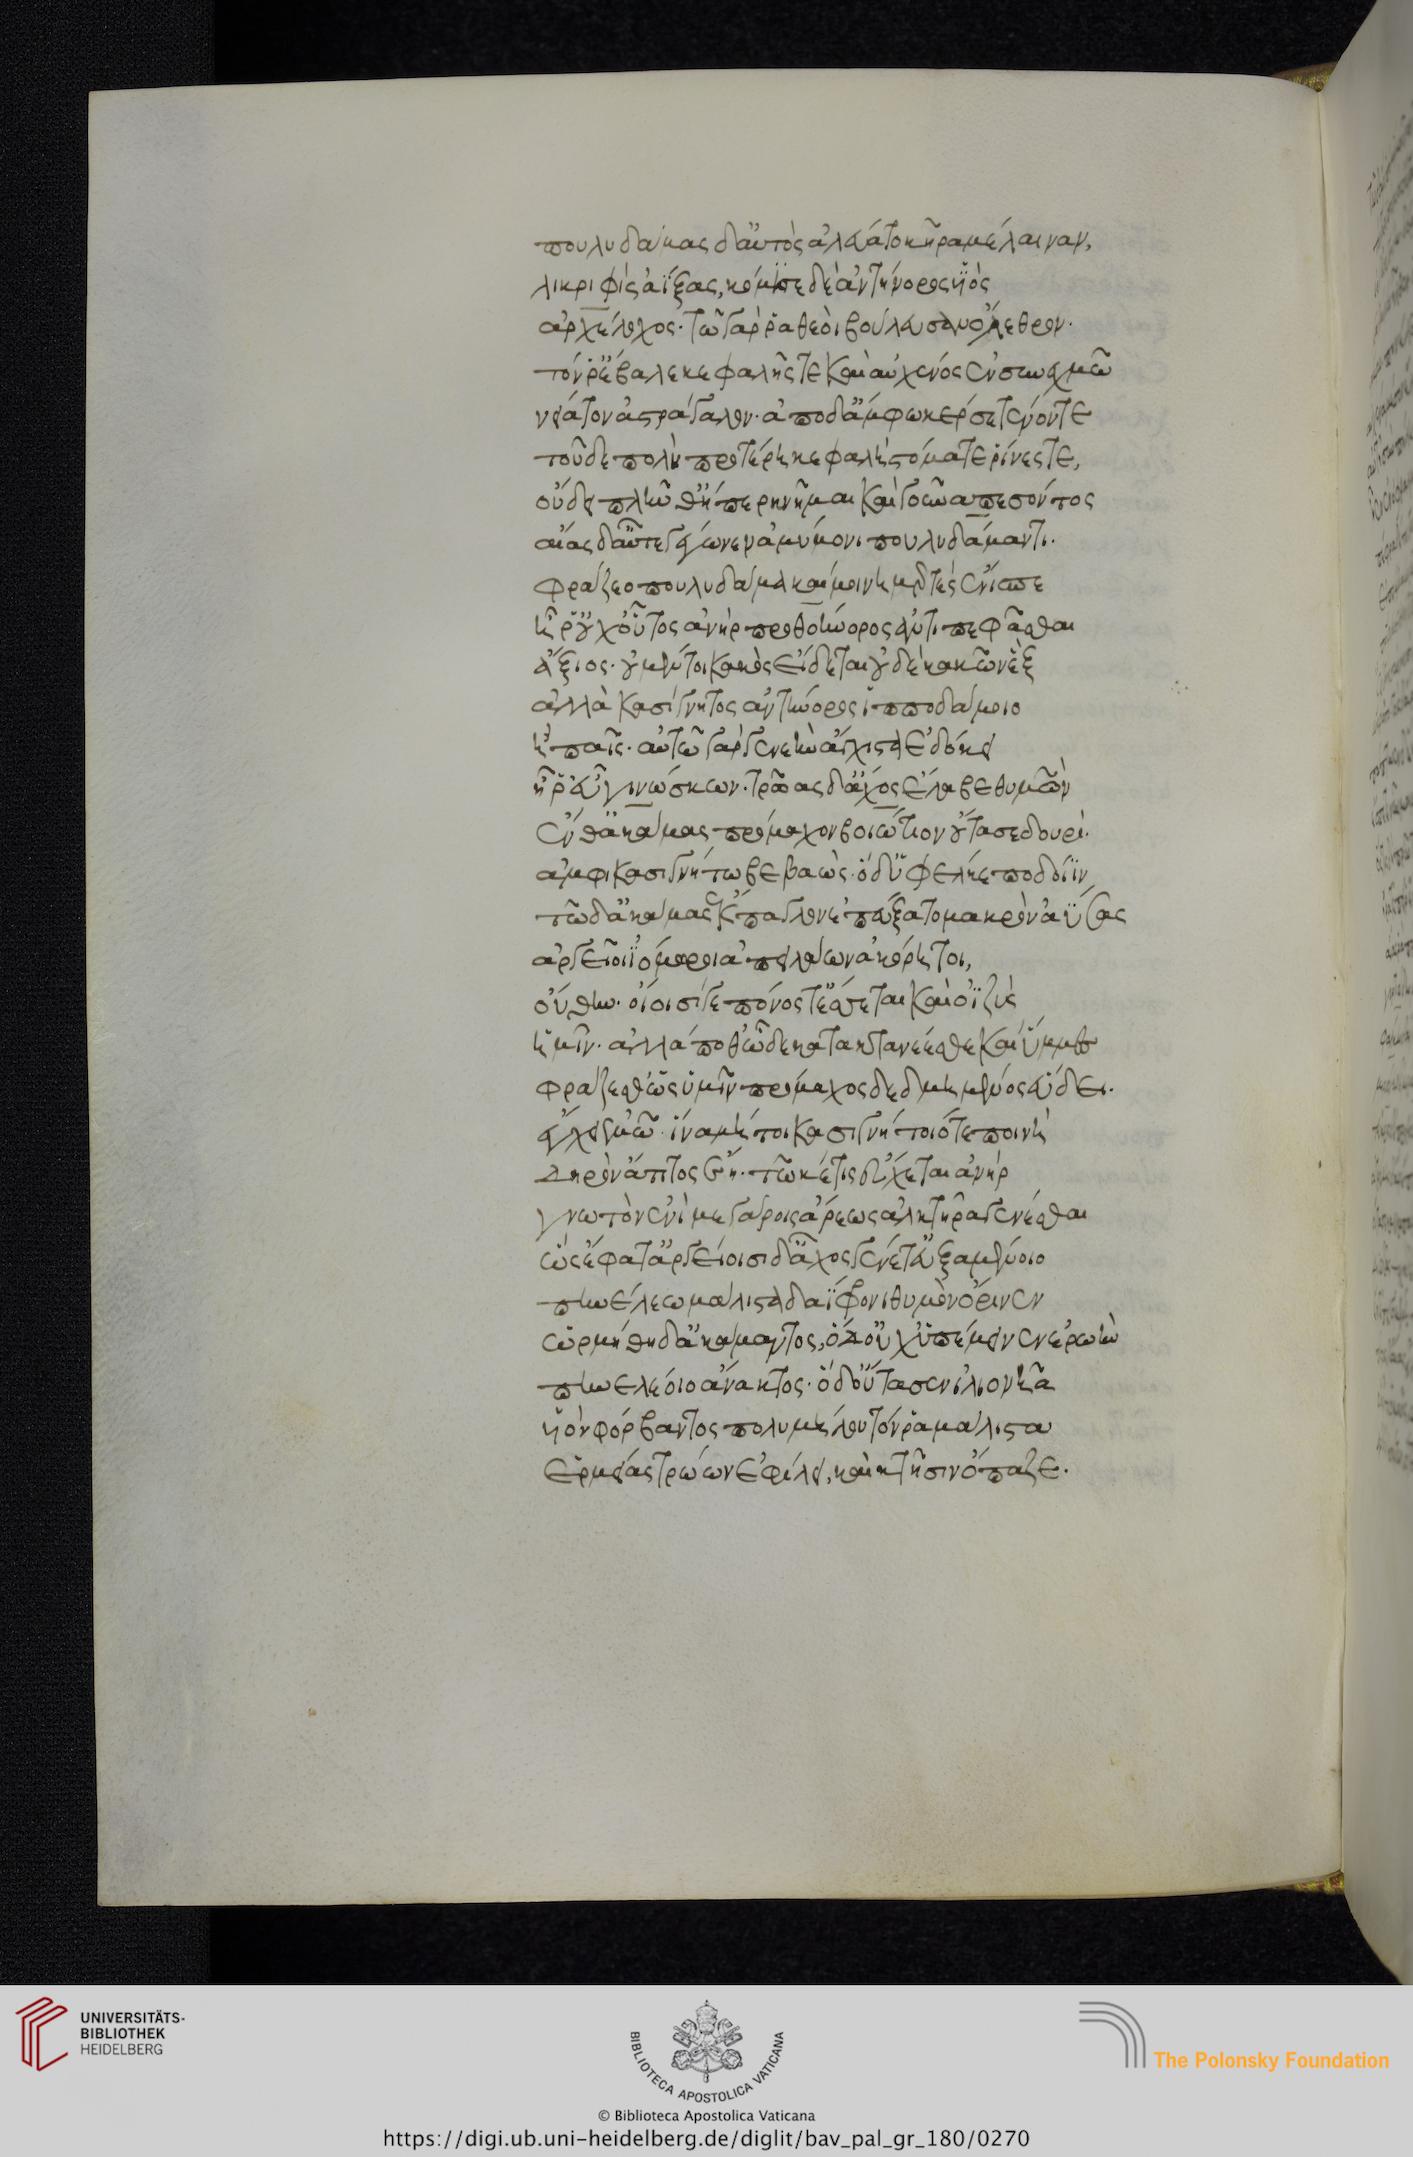 πουλυδάμας δ' αὐτὸς ἀλεύατο κῆρα μέλαιναν,
λικριφὶς ἀΐξας, κόμισε δὲ ἀντήνορος υἱὸς
ἀρχέλοχος· τῶ γάρ ῥα θεοὶ βούλευσαν ὄλεθρον·
τόν ῥ' ἔβαλε κεφαλῆς τε καὶ αὐχένος ἐν συνοχμῶ
νείατον ἀστράγαλον· ἀπὸ δ' ἄμφω κέρσε τένοντε
τοῦ δὲ πολὺ προτέρη κεφαλὴ στόμα τε ῥίνές τε,
οὔδει πλῆνθ' ἤπερ κνῆμαι καὶ γοῦνα πεσόντος
αἴας δ' αὖτε γέγωνεν ἀμύμονι πουλυδάμαντι·
φράζεο πουλυδάμα καί μοι νημερτὲς ἔνισπε
ἦ ῥ' οὐχ οὗτος ἀνὴρ προθοήνορος ἀντὶ πεφᾶσθαι
ἄξιος· οὐ μέν τοι κακὸς εἴδεται οὐδὲ κακῶν ἒξ
ἀλλὰ κασίγνητος ἀντήνορος ἱπποδάμοιο
ἢ παῖς· αὐτῶ γὰρ γενεὴν ἄγχιστα ἐδόκει
ἦ ῥ' εὖ γινώσκων· τρῶας δ' ἄχος ἔλαβε θυμὸν
ἔνθ' ἀκάμας πρόμαχον βοιώτιον οὔτασε δουρί·
ἀμφὶ κασιγνήτω βεβαώς· ὁ δ' ὕφελκε ποδοίϊν
τῶ δ' ἀκάμας ἔκπαγλον ἐπεύξατο μακρὸν ἀΰσας
ἀργεῖοι ἰόμωροι ἀπειλάων ἀκόρητοι,
οὔ θην· οἴοισί γε πόνος τ' ἔσεται καὶ ὀϊζὺς
ἡμῖν· ἀλλά ποθ' ὧδε κατακτανέεσθε καὶ ὔμμες
φράζεσθ' ὡς ὑμῖν πρόμαχος δεδμημένος εὕδει·
ἔγχει ἐμῶ· ἵνα μή τοι κασιγνήτοιό γε ποινὴ
δηρὸν ἄτιτος ἔη· τῶ κέ τις εὔχεται ἀνὴρ
γνωτὸν ἐνὶ μεγάροις ἄρεως ἀλκτῆρα γενέσθαι
ὣς ἔφατ' ἀργείοισι δ' ἄχος γένετ' εὐξαμένοιο
πηνέλεω μάλιστα δαΐφρονι θυμὸν ὄρινεν
ὡρμήθη δ' ἀκάμαντος, ὁ δ' οὐχ ὑπέμεινεν ἐρωὴν
πηνελέοιο ἄνακτος· ὁ δ' οὔτασεν ἰλιονῆα
υἱὸν φόρβαντος πολυμήλου τόν ῥα μάλιστα
ἑρμείας τρώων ἐφίλει, καὶ κτῆσιν ὄπασε.
UNIVERSITÄTS-
BIBLIOTHEK
HEIDELBERG
BIBLIOTECA APOSTOLICA VATICANA
The Polonsky Foundation
© Biblioteca Apostolica Vaticana
https://digi.ub.uni-heidelberg.de/diglit/bav_pal_gr_180/0270